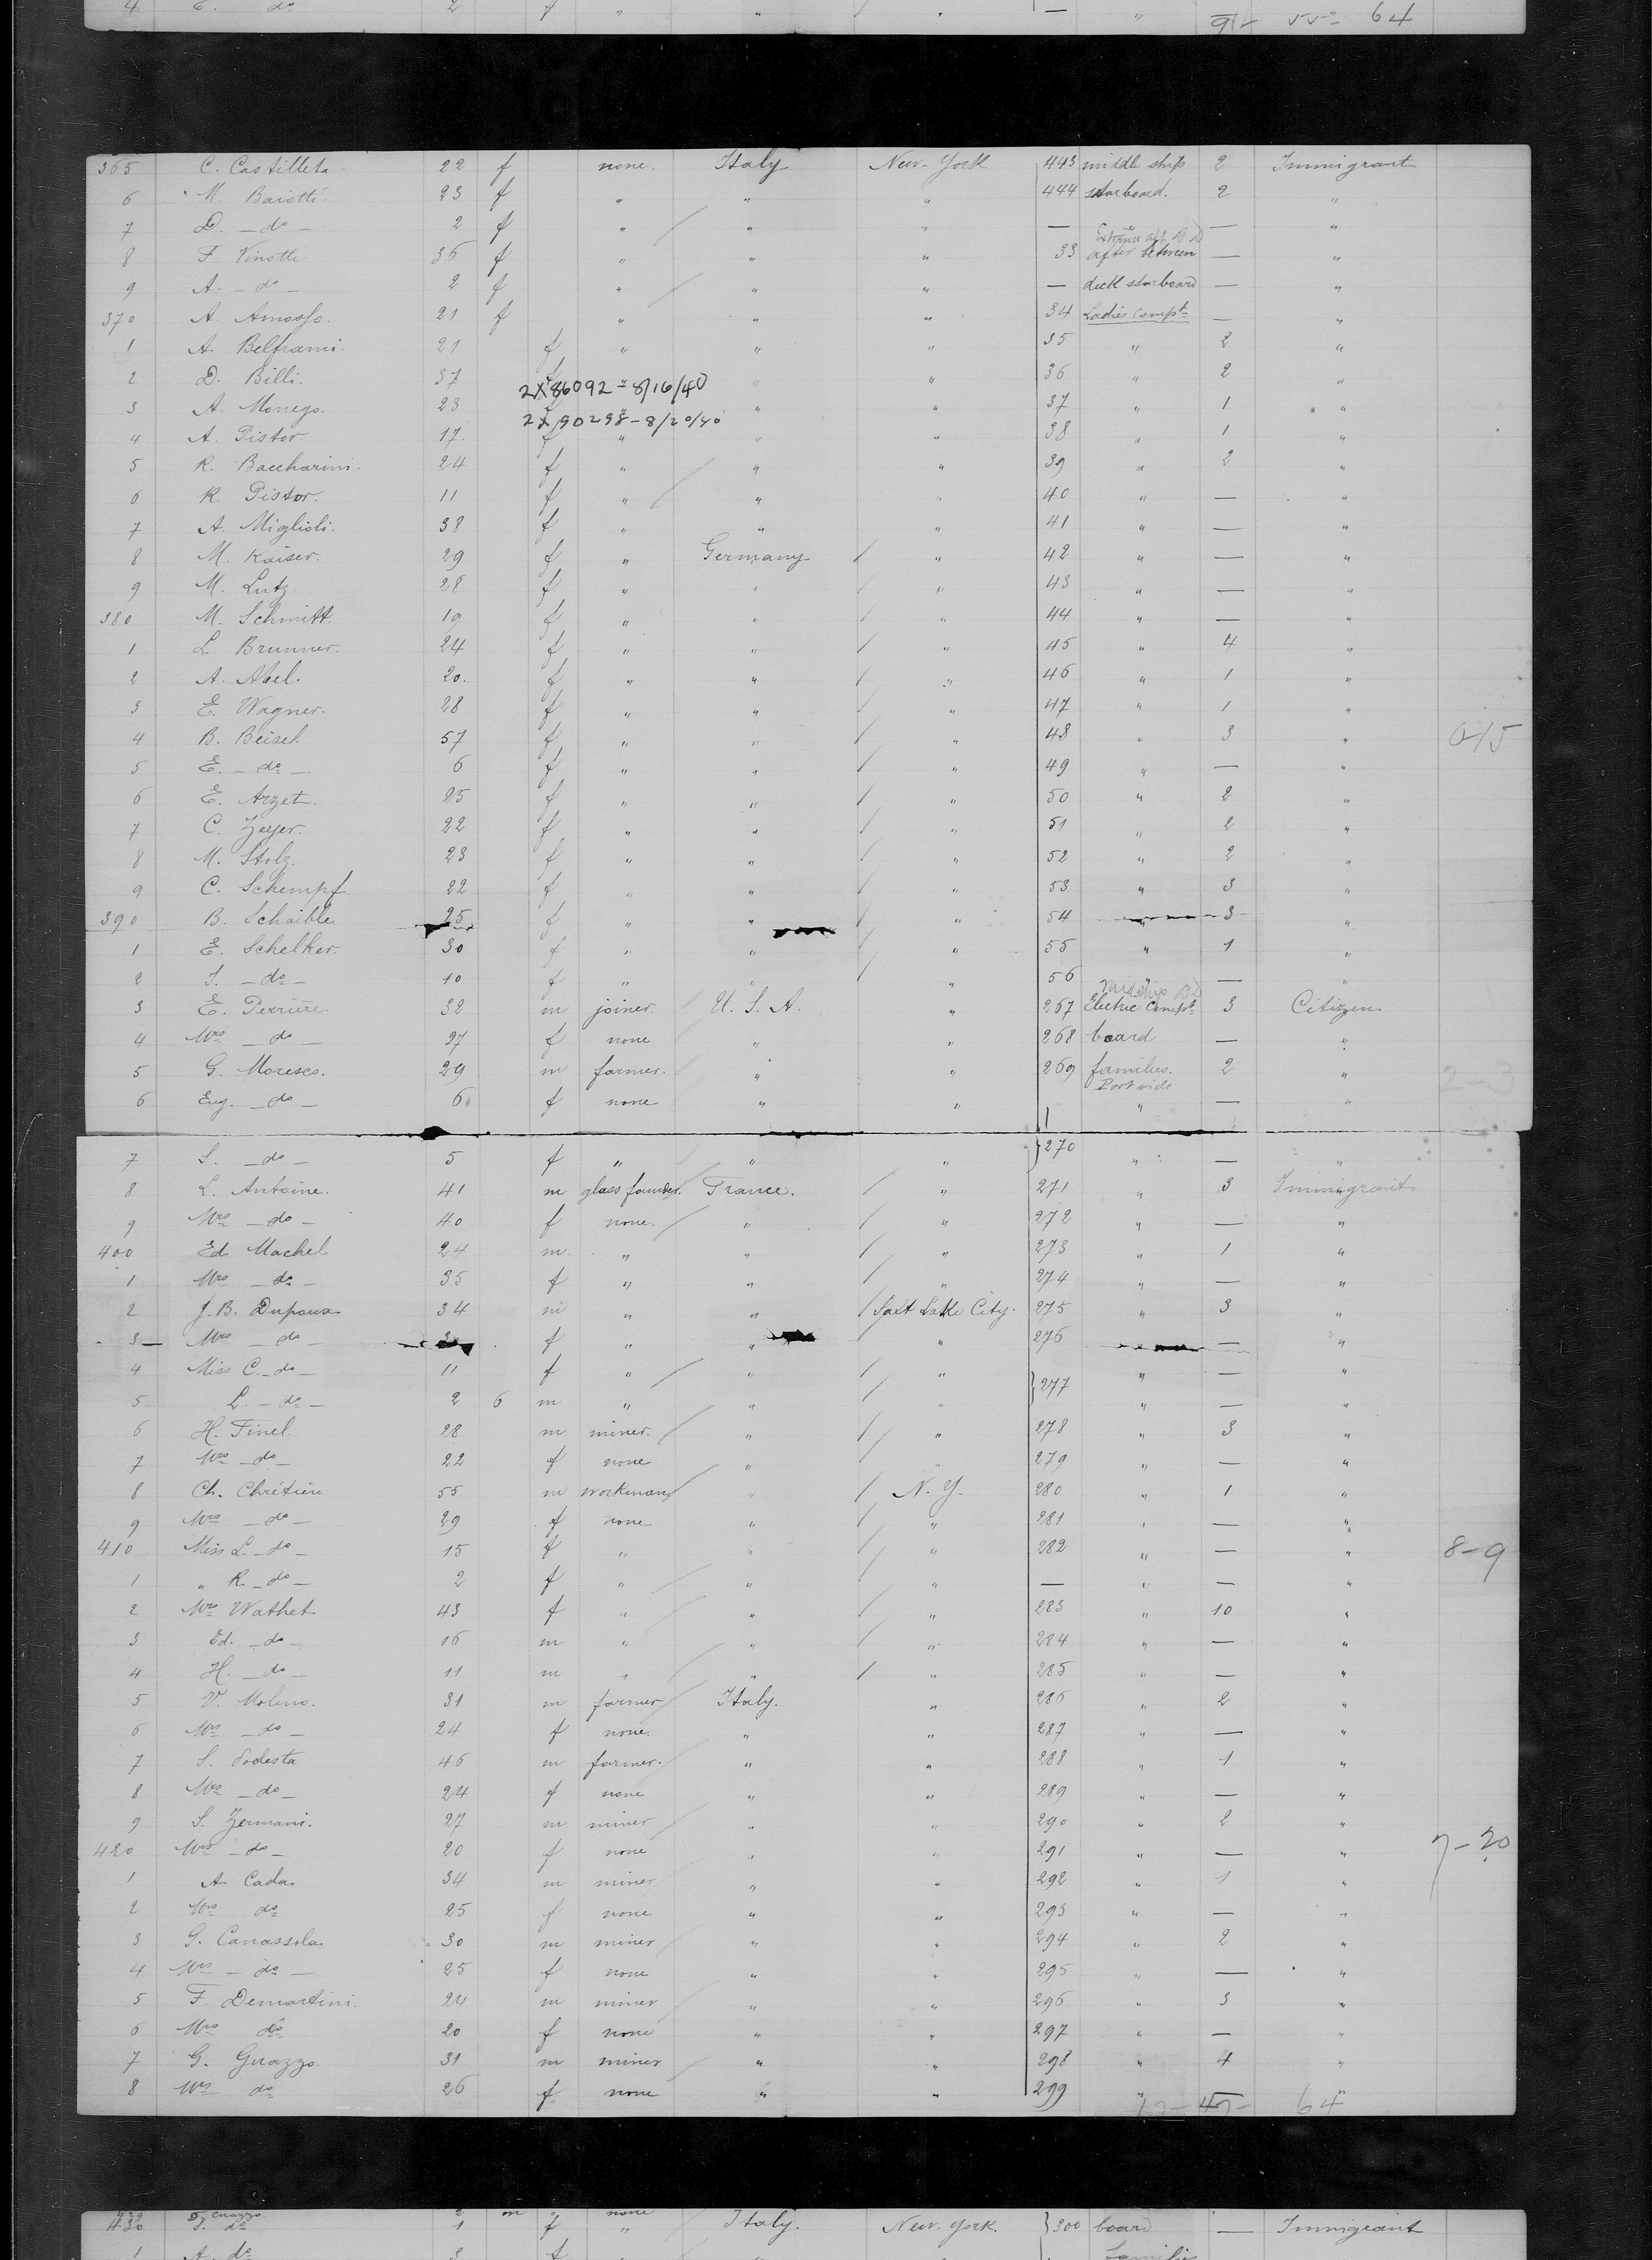 4 E. do 2 f " " " — " 64
365 C. Castilleta 22 f none. Italy New-York 443 middle ship 2 Immigrant
6 M. Bariotti 23 f " " " 444 starboard. 2 "
7 D. — do — 2 f " " " — " — "
8 F. Vinotti 36 f " " " 33 after between — "
9 A. — do — 2 f " " " — deck starboard — "
370 A. Amosso. 21 f " " " 34 Ladies Compt — "
1 A. Belframi. 21 f " " " 35 " 2 "
2 D. Billi. 37 " " 36 " 2 "
2X86092 - 8/16/40
3 A. Monego. 23 " " 37 " 1 "
2X90298 - 8/20/40
4 A. Pistor. 17. f " " " 38 " 1 "
5 R. Baccharini. 24 f " " " 39 " 2 "
6 R. Pistor. 11 f " " " 40 " — "
7 A. Miglioli. 38 f " " " 41 " — "
8 M. Kaiser. 29 f " Germany " 42 " — "
9 M. Lutz. 28 f " " " 43 " — "
380 M. Schmitt. 19 f " " " 44 " — "
1 L. Brunner. 24 f " " " 45 " 4 "
2 A. Abel. 20. f " " " 46 " 1 "
3 E. Wagner. 28 f " " " 47 " 1 "
4 B. Beisel. 57 f " " " 48 " 3 "
5 E. — do — 6 f " " " 49 " — "
6 E. Arzet. 25 f " " " 50 " 2 "
7 C. Zeyer. 22 f " " " 51 " 2 "
8 M. Stolz. 23 f " " " 52 " 2 "
9 C. Schempf 22 f " " " 53 " 3 "
390 B. Schaible 25 f " " " 54 " 3 "
1 E. Schelker. 30 f " " " 55 " 1 "
2 S. — do — 10 f " " " 56 " — "
3 E. Perriere 32 m joiner. U. S. A. " 267 Electric Compt 3 Citizen
4 Mrs — do — 27 f none " " 268 board — "
5 G. Moresco. 29 m farmer. " " 269 families. 2 "
Port side
6 Eug. — do — 6 f none " " " — "
7 S. — do — 5 f " " " 270 " — "
8 L. Antoine. 41 m glass founder. France. " 271 " 3 Immigrant
9 Mrs — do — 40 f none. " " 272 " — "
400 Ed. Machel. 24 m " " " 273 " 1 "
1 Mrs — do — 35 f " " " 274 " — "
2 J. B. Dupoux 34 m " " Salt Lake City. 275 " 3 "
3 Mrs — do — f " " " 276 — "
4 Miss C. — do — 11 f " " " 277 " — "
5 L. — do — 2 6 m " " " " — "
6 H. Finel. 28 m miner. " " 278 " 3 "
7 Mrs — do — 22 f none " " 279 " — "
8 Ch. Chrétien 55 m workman " N. Y. 280 " 1 "
9 Mrs — do — 29 f none " " 281 " — "
410 Miss L. — do — 15 f " " " 282 " — " 8-9
1 " R. — do — 2 f " " " — " — "
2 Mrs Wathet 43 f " " " 283 " 10 "
3 Ed. — do — 16 m " " " 284 " — "
4 H. — do — 11 m " " " 285 " — "
5 V. Molino. 31 m farmer Italy. " 286 " 2 "
6 Mrs — do — 24 f none. " " 287 " — "
7 S. Podesta 46 m farmer. " " 288 " 1 "
8 Mrs — do — 24 f none " " 289 " — "
9 S. Zermani. 27 m miner " " 290 " 2 "
420 Mrs — do — 20 f none " " 291 " — " 7-20
1 A. Cada. 34 m miner " " 292 " 1 "
2 Mrs do 25 f none " " 293 " — "
3 G. Canassola 30 m miner " " 294 " 2 "
4 Mrs — do — 25 f none " " 295 " — "
5 F. Demartini. 24 m miner " " 296 " 3 "
6 Mrs do 20 f none " " 297 " — "
7 G. Guazzo. 31 m miner " " 298 " 4 "
8 Mrs do 26 f none " " 299 " 64
430 S. do 1 f " Italy. New-York. 300 board — Immigrant
1 A. do 3 f families